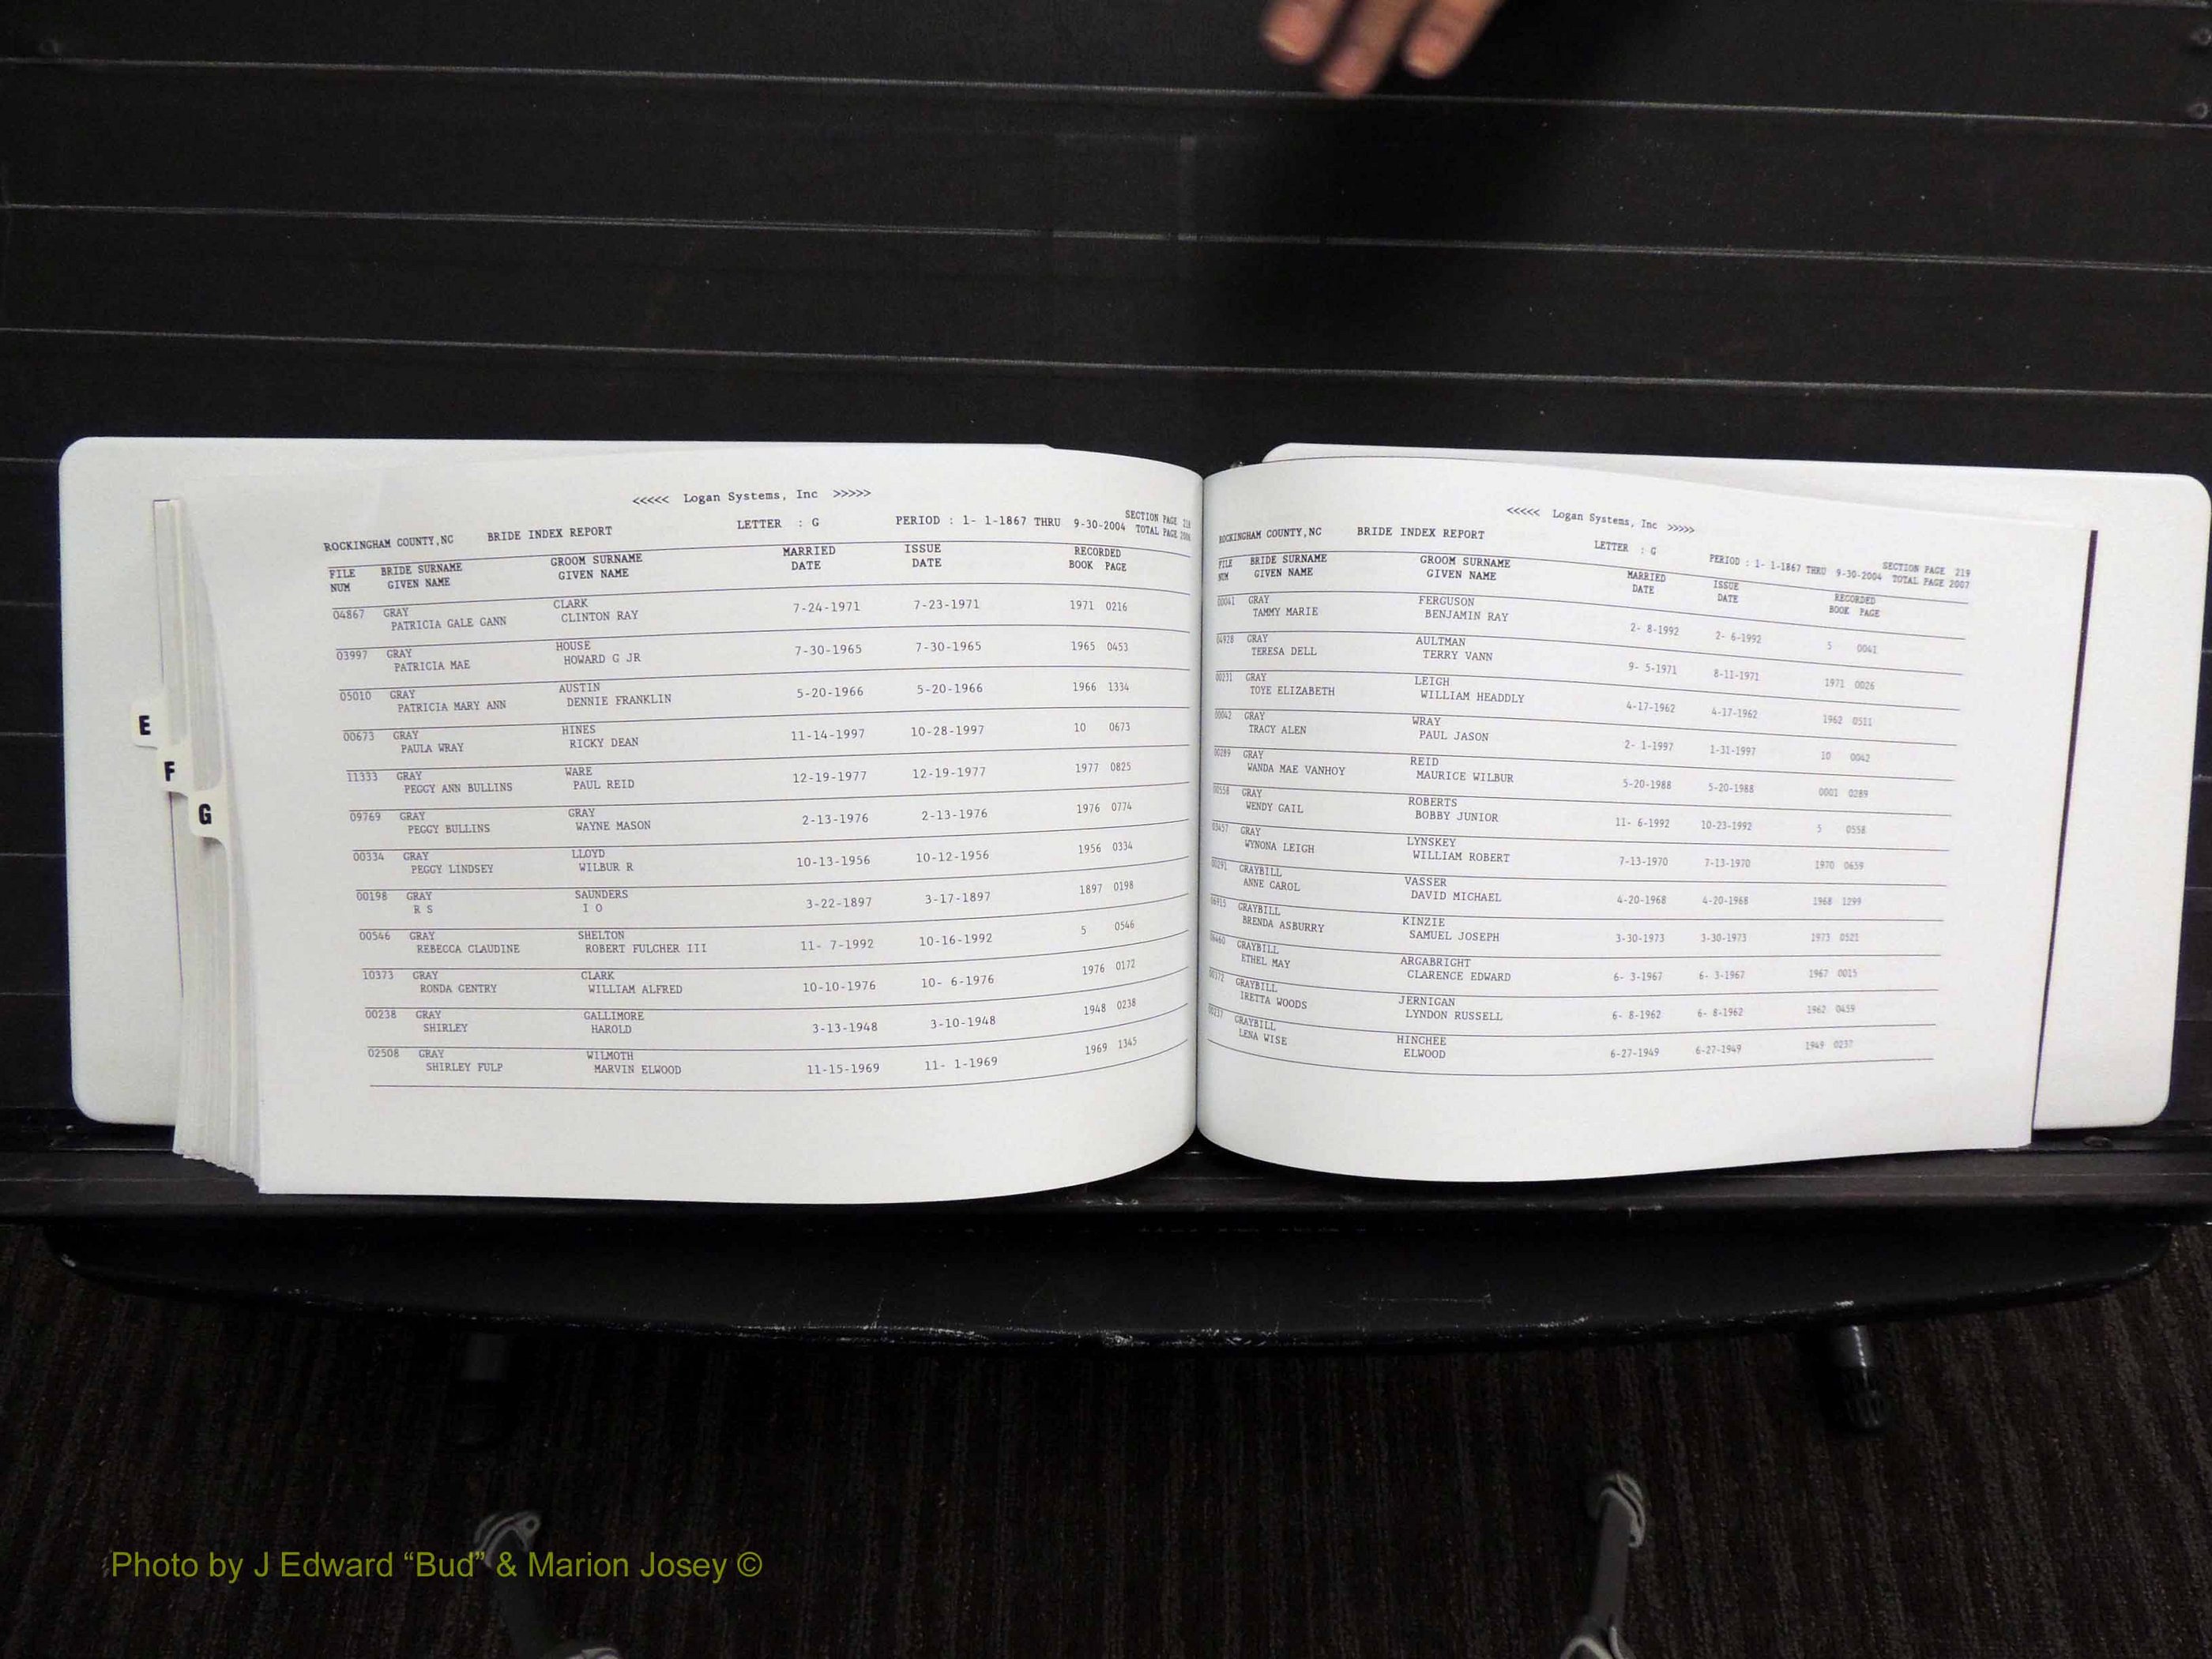 <<<<< Logan Systems, Inc >>>>>
ROCKINGHAM COUNTY,NC BRIDE INDEX REPORT LETTER : G PERIOD : 1- 1-1867 THRU 9-30-2004 SECTION PAGE 218
TOTAL PAGE 2006
FILE BRIDE SURNAME GROOM SURNAME MARRIED ISSUE RECORDED
NUM GIVEN NAME GIVEN NAME DATE DATE BOOK PAGE
04867 GRAY CLARK 7-24-1971 7-23-1971 1971 0216
PATRICIA GALE GANN CLINTON RAY
03997 GRAY HOUSE 7-30-1965 7-30-1965 1965 0453
PATRICIA MAE HOWARD G JR
05010 GRAY AUSTIN 5-20-1966 5-20-1966 1966 1334
PATRICIA MARY ANN DENNIE FRANKLIN
00673 GRAY HINES 11-14-1997 10-28-1997 10 0673
PAULA WRAY RICKY DEAN
11333 GRAY WARE 12-19-1977 12-19-1977 1977 0825
PEGGY ANN BULLINS PAUL REID
09769 GRAY GRAY 2-13-1976 2-13-1976 1976 0774
PEGGY BULLINS WAYNE MASON
00334 GRAY LLOYD 10-13-1956 10-12-1956 1956 0334
PEGGY LINDSEY WILBUR R
00198 GRAY SAUNDERS 3-22-1897 3-17-1897 1897 0198
R S I O
00546 GRAY SHELTON 11- 7-1992 10-16-1992 5 0546
REBECCA CLAUDINE ROBERT FULCHER III
10373 GRAY CLARK 10-10-1976 10- 6-1976 1976 0172
RONDA GENTRY WILLIAM ALFRED
00238 GRAY GALLIMORE 3-13-1948 3-10-1948 1948 0238
SHIRLEY HAROLD
02508 GRAY WILMOTH 11-15-1969 11- 1-1969 1969 1345
SHIRLEY FULP MARVIN ELWOOD
E
F
G
<<<<< Logan Systems, Inc >>>>>
ROCKINGHAM COUNTY,NC BRIDE INDEX REPORT LETTER : G PERIOD : 1- 1-1867 THRU 9-30-2004 SECTION PAGE 219
TOTAL PAGE 2007
FILE BRIDE SURNAME GROOM SURNAME MARRIED ISSUE RECORDED
NUM GIVEN NAME GIVEN NAME DATE DATE BOOK PAGE
00041 GRAY FERGUSON 2- 8-1992 2- 6-1992 5 0041
TAMMY MARIE BENJAMIN RAY
04928 GRAY AULTMAN 9- 5-1971 8-11-1971 1971 0026
TERESA DELL TERRY VANN
00231 GRAY LEIGH 4-17-1962 4-17-1962 1962 0511
TOYE ELIZABETH WILLIAM HEADDLY
00042 GRAY WRAY 2- 1-1997 1-31-1997 10 0042
TRACY ALEN PAUL JASON
00289 GRAY REID 5-20-1988 5-20-1988 0001 0289
WANDA MAE VANHOY MAURICE WILBUR
00558 GRAY ROBERTS 11- 6-1992 10-23-1992 5 0558
WENDY GAIL BOBBY JUNIOR
03457 GRAY LYNSKEY 7-13-1970 7-13-1970 1970 0659
WYNONA LEIGH WILLIAM ROBERT
00291 GRAYBILL VASSER 4-20-1968 4-20-1968 1968 1299
ANNE CAROL DAVID MICHAEL
06915 GRAYBILL KINZIE 3-30-1973 3-30-1973 1973 0521
BRENDA ASBURRY SAMUEL JOSEPH
GRAYBILL ARGABRIGHT 6- 3-1967 6- 3-1967 1967 0015
ETHEL MAY CLARENCE EDWARD
GRAYBILL JERNIGAN 6- 8-1962 6- 8-1962 1962 0459
IRETTA WOODS LYNDON RUSSELL
00237 GRAYBILL HINCHEE 6-27-1949 6-27-1949 1949 0237
LENA WISE ELWOOD
Photo by J Edward “Bud” & Marion Josey ©